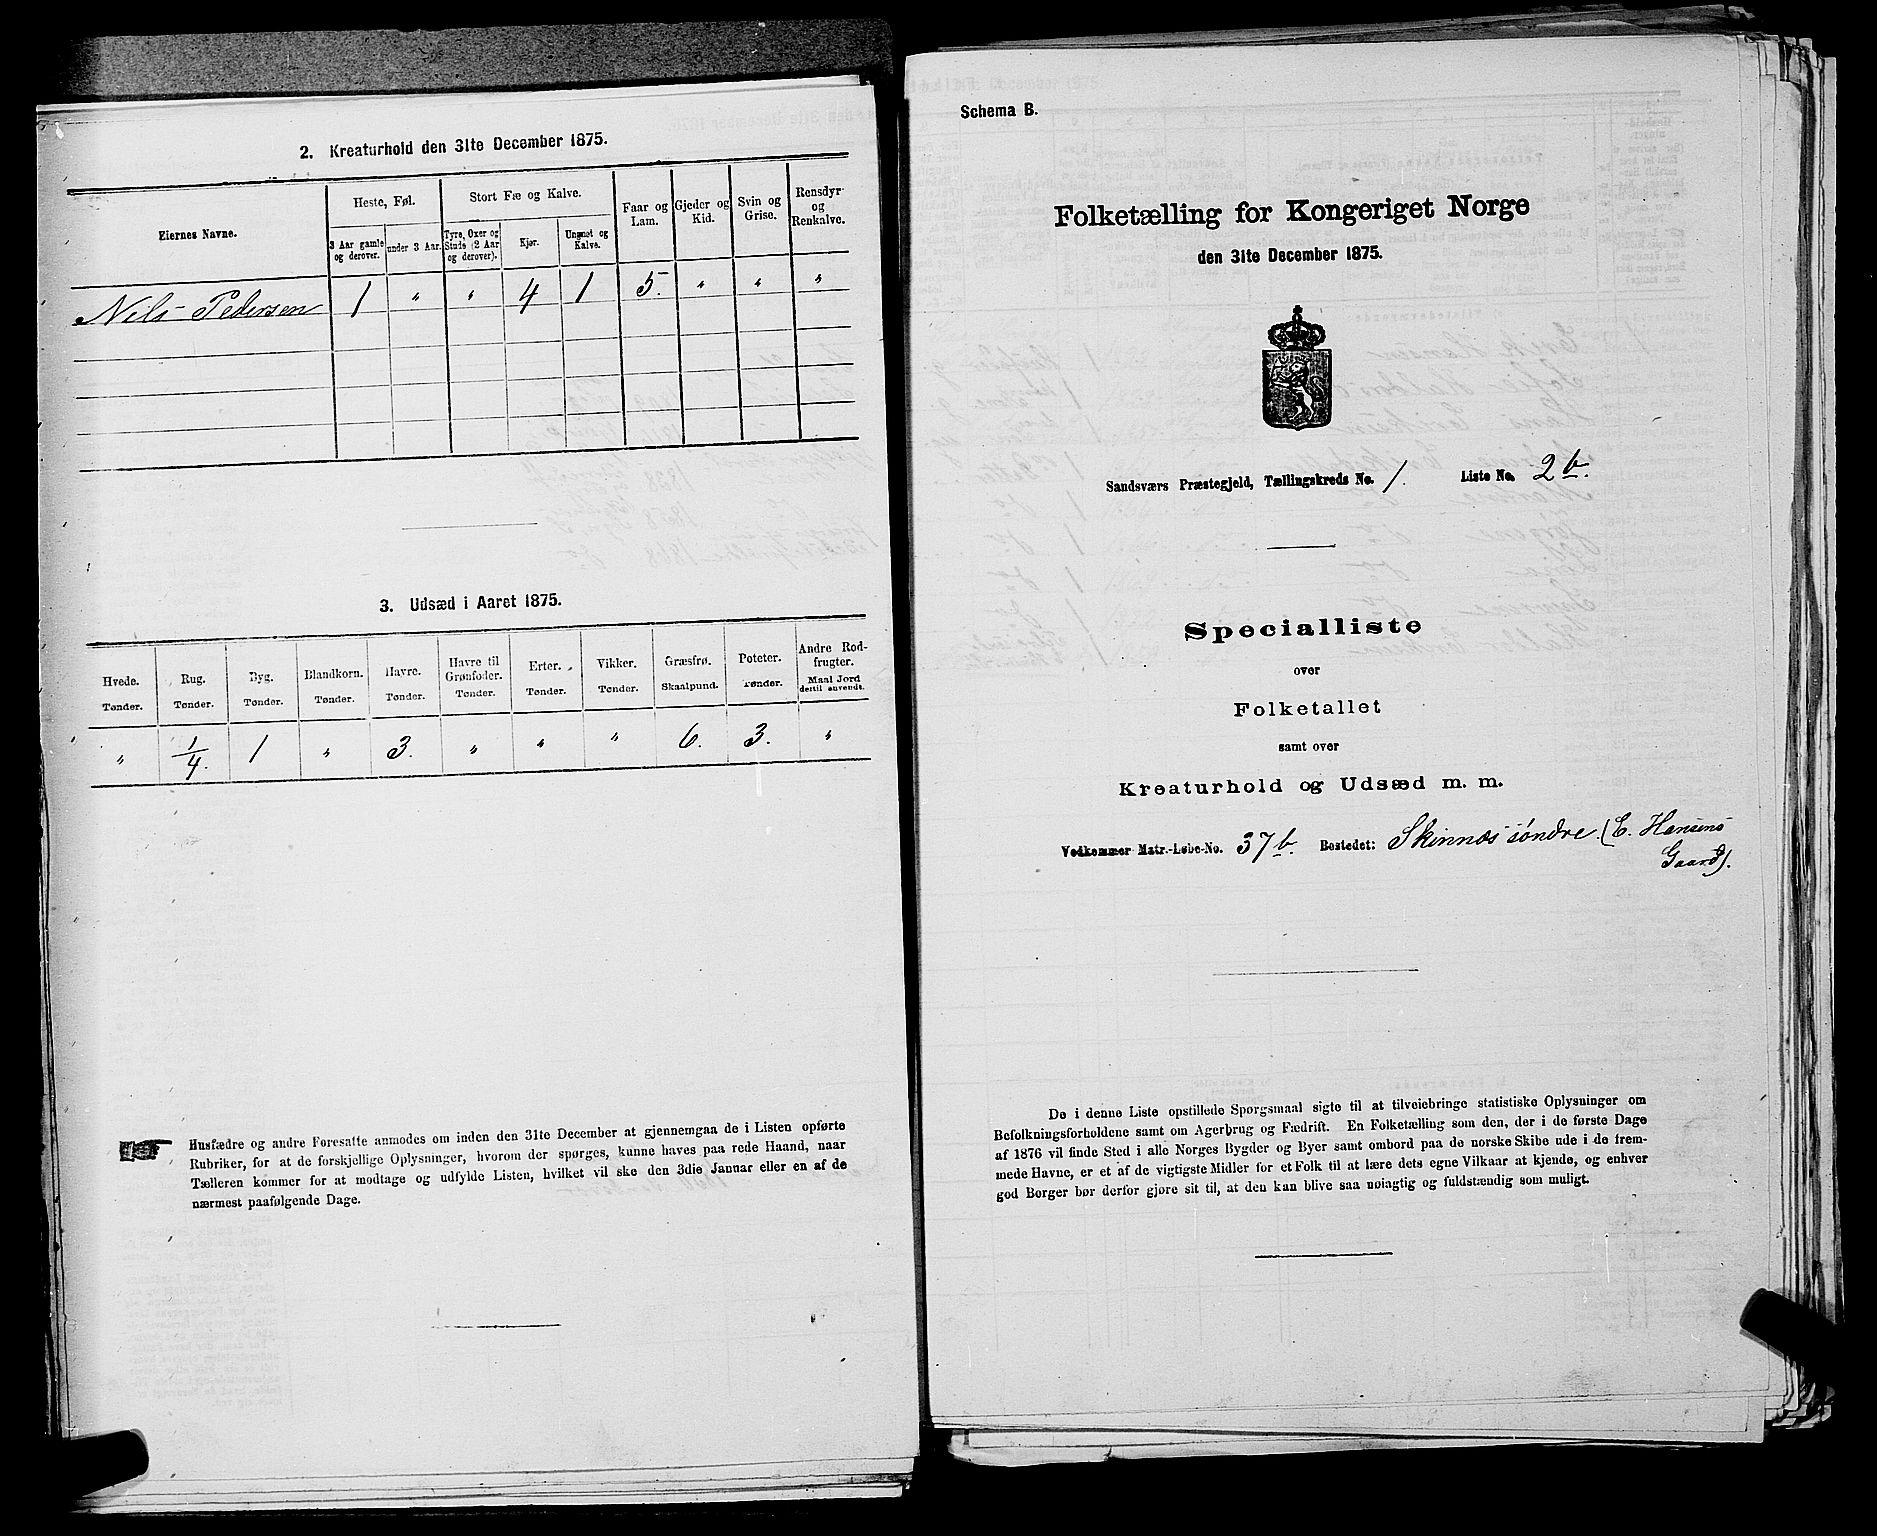 2. Kreaturhold den 31te December 1875.
Eiernes Navne.
Heste, Føl.
3 Aar gamle og derover.
under 3 Aar.
Stort Fæ og Kalve.
Tyre, Oxer og Stude (2 Aar og derover).
Kjør.
Ungnøt og Kalve.
Faar og Lam.
Gjeder og Kid.
Svin og Grise.
Rensdyr og Renkalve.
Nils Pedersen 1 " " 4 1 5. " " "
3. Udsæd i Aaret 1875.
Hvede. Rug. Byg. Blandkorn. Havre. Havre til Grønfoder. Erter. Vikker. Græsfrø. Poteter. Andre Rodfrugter.
Tønder. Tønder. Tønder. Tønder. Tønder. Tønder. Tønder. Tønder. Skaalpund. Tønder. Maal Jord dertil anvendt.
" 1/4. 1 " 3. " " " 6. 3. "
Husfædre og andre Foresatte anmodes om inden den 31te December at gjennemgaa de i Listen opførte
Rubriker, for at de forskjellige Oplysninger, hvorom der spørges, kunne haves paa rede Haand, naar
Tælleren kommer for at modtage og udfylde Listen, hvilket vil ske den 3die Januar eller en af de
nærmest paafølgende Dage.
Schema B.
Folketælling for Kongeriget Norge
den 31te December 1875.
Sandsværs Præstegjeld, Tællingskreds No. 1. Liste No. 2b.
Specialliste
over
Folketallet
samt over
Kreaturhold og Udsæd m. m.
Vedkommer Matr.-Løbe-No. 37b. Bostedet: Skinnæs søndre (E. Hansens
Gaard).
De i denne Liste opstillede Spørgsmaal sigte til at tilveiebringe statistiske Oplysninger om
Befolkningsforholdene samt om Agerbrug og Fædrift. En Folketælling som den, der i de første Dage
af 1876 vil finde Sted i alle Norges Bygder og Byer samt ombord paa de norske Skibe ude i de frem-
mede Havne, er et af de vigtigste Midler for et Folk til at lære dets egne Vilkaar at kjende, og enhver
god Borger bør derfor gjøre sit til, at den kan blive saa nøiagtig og fuldstændig som muligt.